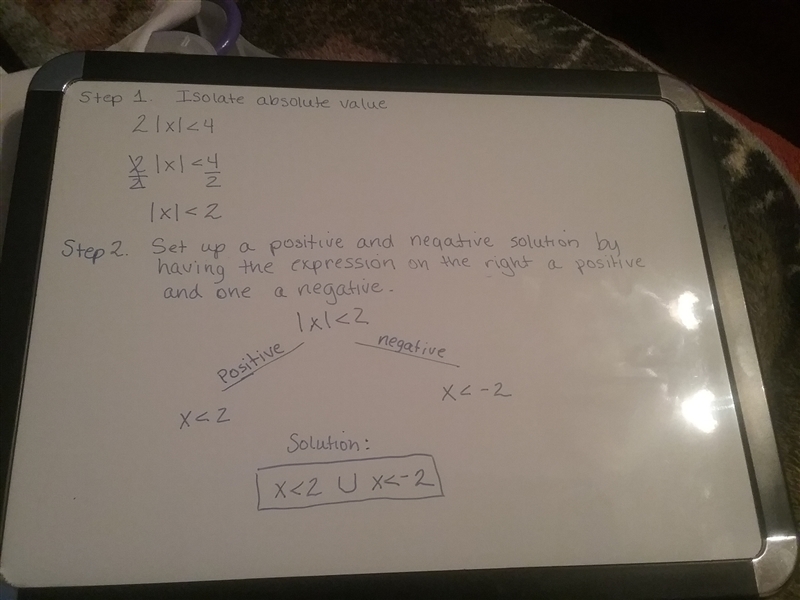 Step 1. Isolate absolute value
2|x|<4
2/2 |x|<4/2
|x|<2
Step 2. Set up a positive and negative solution by
having the expression on the right a positive
and one a negative.
|x|<2
positive negative
x<2 x<-2
Solution:
x<2 ∪ x<-2